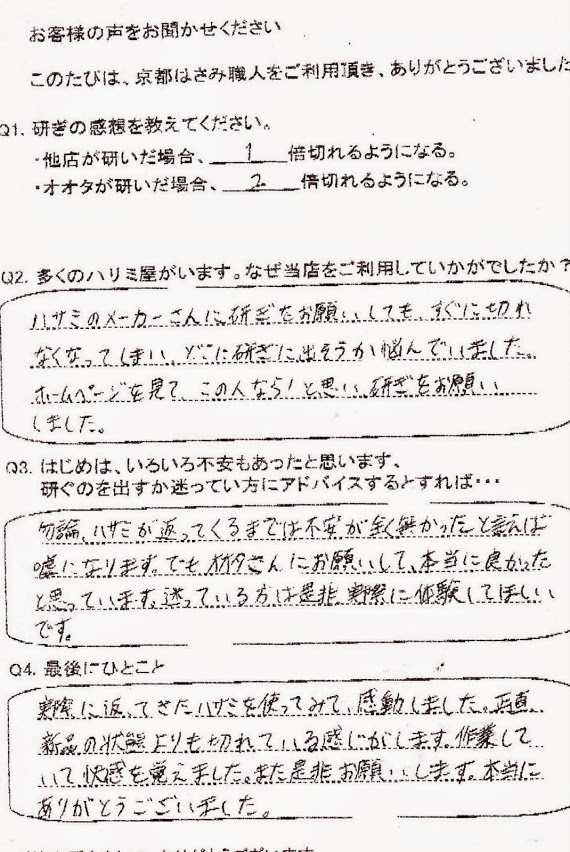 お客様の声をお聞かせください
このたびは、京都はさみ職人をご利用頂き、ありがとうございました
Q1. 研ぎの感想を教えてください。
・他店が研いだ場合、 1 倍切れるようになる。
・オオタが研いだ場合、 2 倍切れるようになる。
Q2. 多くのハリミ屋がいます。なぜ当店をご利用していかがでしたか?
ハサミのメーカーさんに研ぎをお願いしても、すぐに切れ
なくなってしまい、どこに研ぎに出そうか悩んでいました。
ホームページを見て、この人なら!と思い、研ぎをお願い
しました。
Q3. はじめは、いろいろ不安もあったと思います、
研ぐのを出すか迷ってい方にアドバイスするとすれば・・・
勿論、ハサミが返ってくるまでは不安が全く無かったと言えば
嘘になります。でもオオタさんにお願いして、本当に良かった
と思っています。迷っている方は是非、実際に体験してほしい
です。
Q4. 最後にひとこと
実際に返ってきたハサミを使ってみて、感動しました。正直、
新品の状態よりも切れている感じがします。作業して
いて快感を覚えました。また是非お願いします。本当に
ありがとうございました。